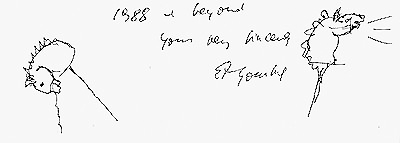 1988 & beyond
Yours very sincerely